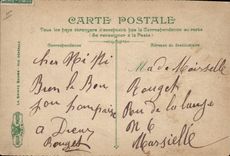 CARTE POSTALE
Tous les pays étrangers n'acceptent pas la Correspondance au recto
(Se renseigner à la Poste)
Correspondance
Adresse du destinataire
cher Mi Mi
Bien le Bon
jour
a Dieux
Rouget
Mademoiselle
Rouget
Rue de la
N 6
Marseille